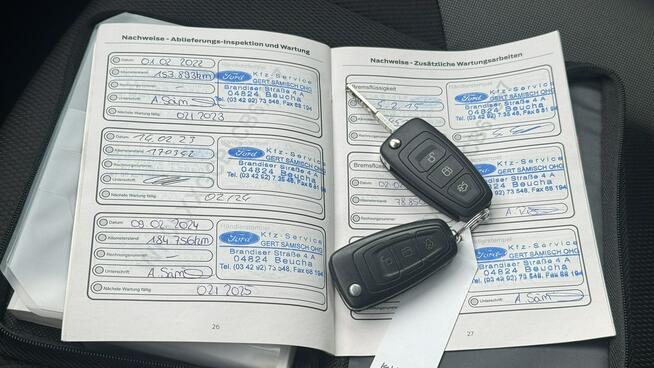 Nachweise - Ablieferungs-Inspektion und Wartung
Datum 01.02.2022
Kilometerstand 153.893km
Rechnungsnummer
Unterschrift
Nächste Wartung fällig 02.1.2023
Ford Kfz-Service
GERT SÄMISCH OHG
Brandiser Straße 4 A
04824 Beucha
Tel. (03 42 92) 73 548, Fax 68 194
Datum 14.02.23
Kilometerstand 170342
Rechnungsnummer
Unterschrift
Nächste Wartung fällig 02/24
Ford Kfz-Service
GERT SÄMISCH OHG
Brandiser Straße 4 A
04824 Beucha
Datum 09.02.2024
Kilometerstand 184.756km
Rechnungsnummer
Unterschrift
Nächste Wartung fällig 02.1.2025
Ford Kfz-Service
GERT SÄMISCH OHG
Brandiser Straße 4 A
04824 Beucha
Tel. (03 42 92) 73 548, Fax 68 194
26
Nachweise - Zusätzliche Wartungsarbeiten
Bremsflüssigkeit
5.2.15
Ford Kfz-Service
GERT SÄMISCH OHG
Brandiser Straße 4 A
04824 Beucha
Bremsflüssigkeit
Rechnungsnummer
Ford Kfz-Service
GERT SÄMISCH OHG
Brandiser Straße 4 A
04824 Beucha
Tel. (03 42 92) 73 548, Fax 68 194
Kfz-Service
GERT SÄMISCH OHG
Brandiser Straße 4 A
04824 Beucha
Tel. (03 42 92) 73 548, Fax 68 194
Unterschrift
27